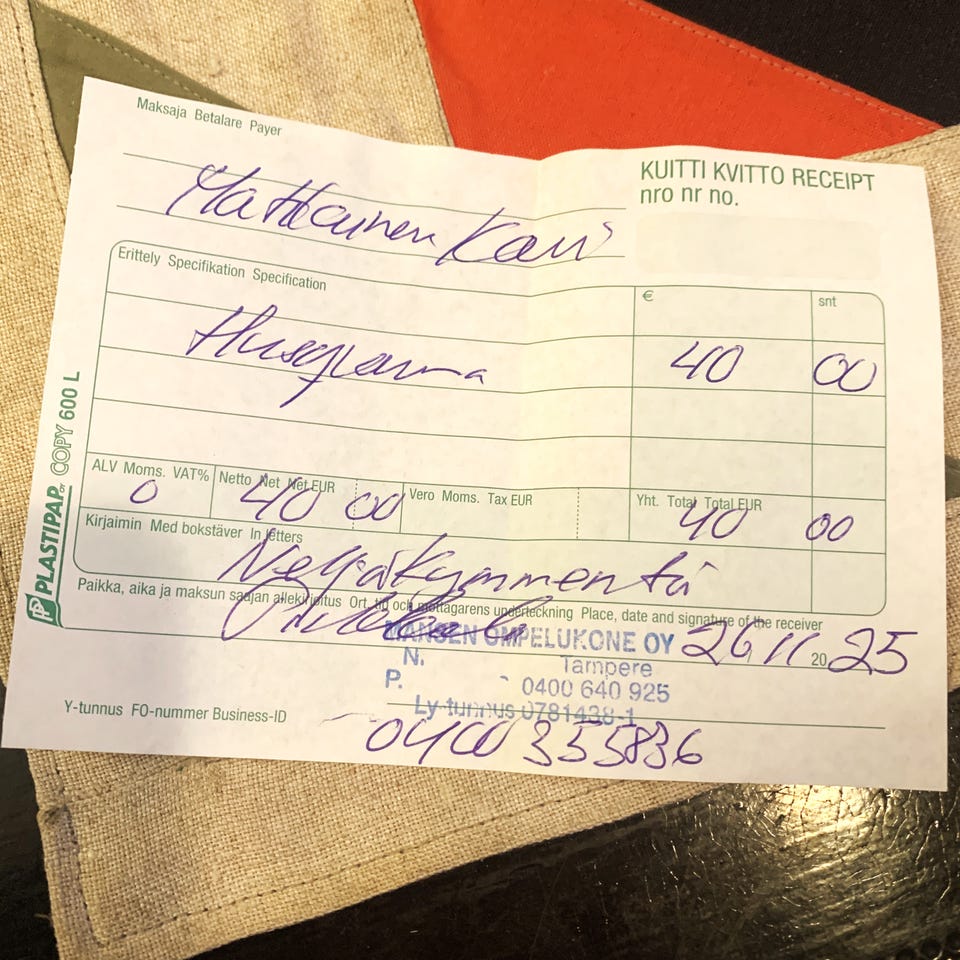 Maksaja Betalare Payer
KUITTI KVITTO RECEIPT
nro nr no.
Mattainen Kari
Erittely Specifikation Specification
€ snt
Husqvarna 40 00
ALV Moms. VAT% Netto Net Net EUR Vero Moms. Tax EUR Yht. Total Total EUR
0 40 00 40 00
Kirjaimin Med bokstäver In letters
Neljäkymmentä
Paikka, aika ja maksun saajan allekirjoitus Ort, tid och mottagarens underteckning Place, date and signature of the receiver
MANSEN OMPELUKONE OY 26 11 2025
N. Tampere
P. 0400 640 925
Ly-tunnus 0781438-1
Y-tunnus FO-nummer Business-ID
0400 355836
PLASTIPAP OY COPY 600 L